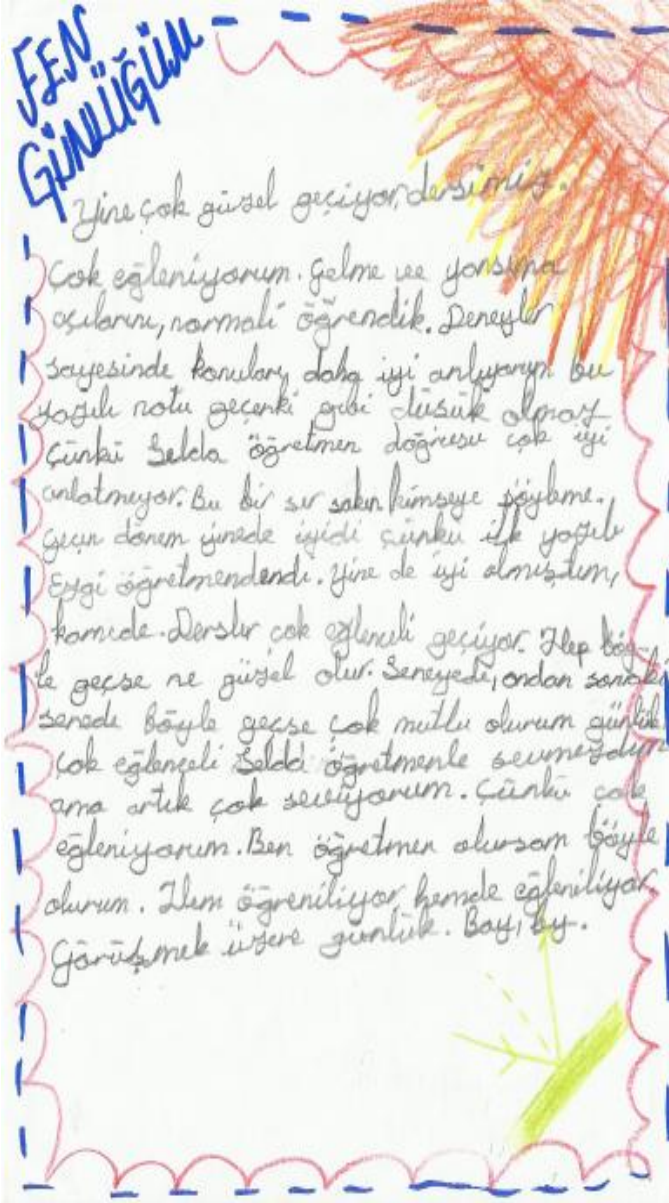 FEN
GÜNLÜĞÜM
Yine çok güzel geçiyor, dersimiz.
Çok eğleniyorum. Gelme ve yansıma
açılarını, normali öğrendik. Deneyler
sayesinde konuları daha iyi anlıyorum bu
yazılı notu geçenki gibi düşük olmaz
Çünkü Selda öğretmen doğrusu çok iyi
anlatmıyor. Bu bir sır sakın kimseye söyleme.
Geçen dönem yinede iyidi çünkü ilk yazılı
Ezgi öğretmendendi. Yine de iyi almıştım,
karnede. Dersler çok eğlenceli geçiyor. Hep böy-
le geçse ne güzel olur. Seneyede, ondan sonraki
senede böyle geçse çok mutlu olurum günlük
Çok eğlençeli Selda öğretmenle sevmezdim
ama artık çok seviyorum. Çünkü çok
eğleniyorum. Ben öğretmen olursam böyle
olurum. Hem öğreniliyor hemde eğleniliyor.
Görüşmek üzere günlük. Bay, by.